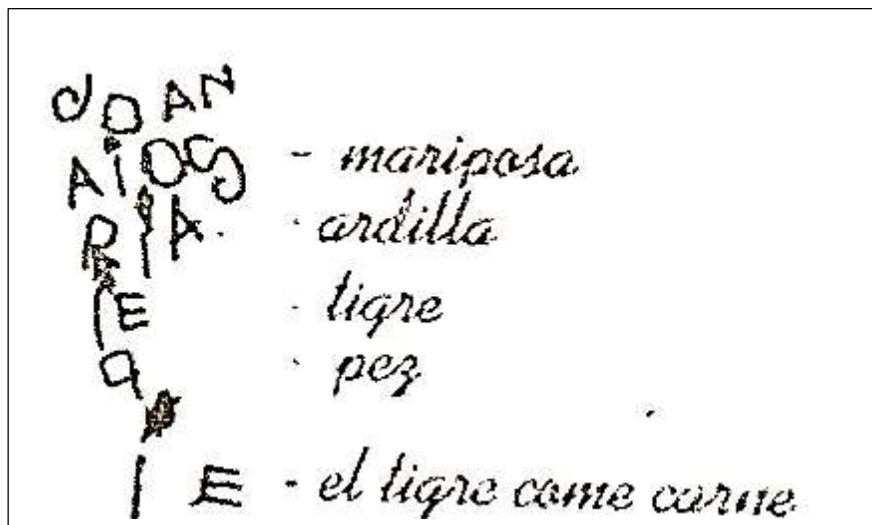 JOAN
AIOS - mariposa
RIA - ardilla
IE - tigre
a - pez
I E - el tigre come carne